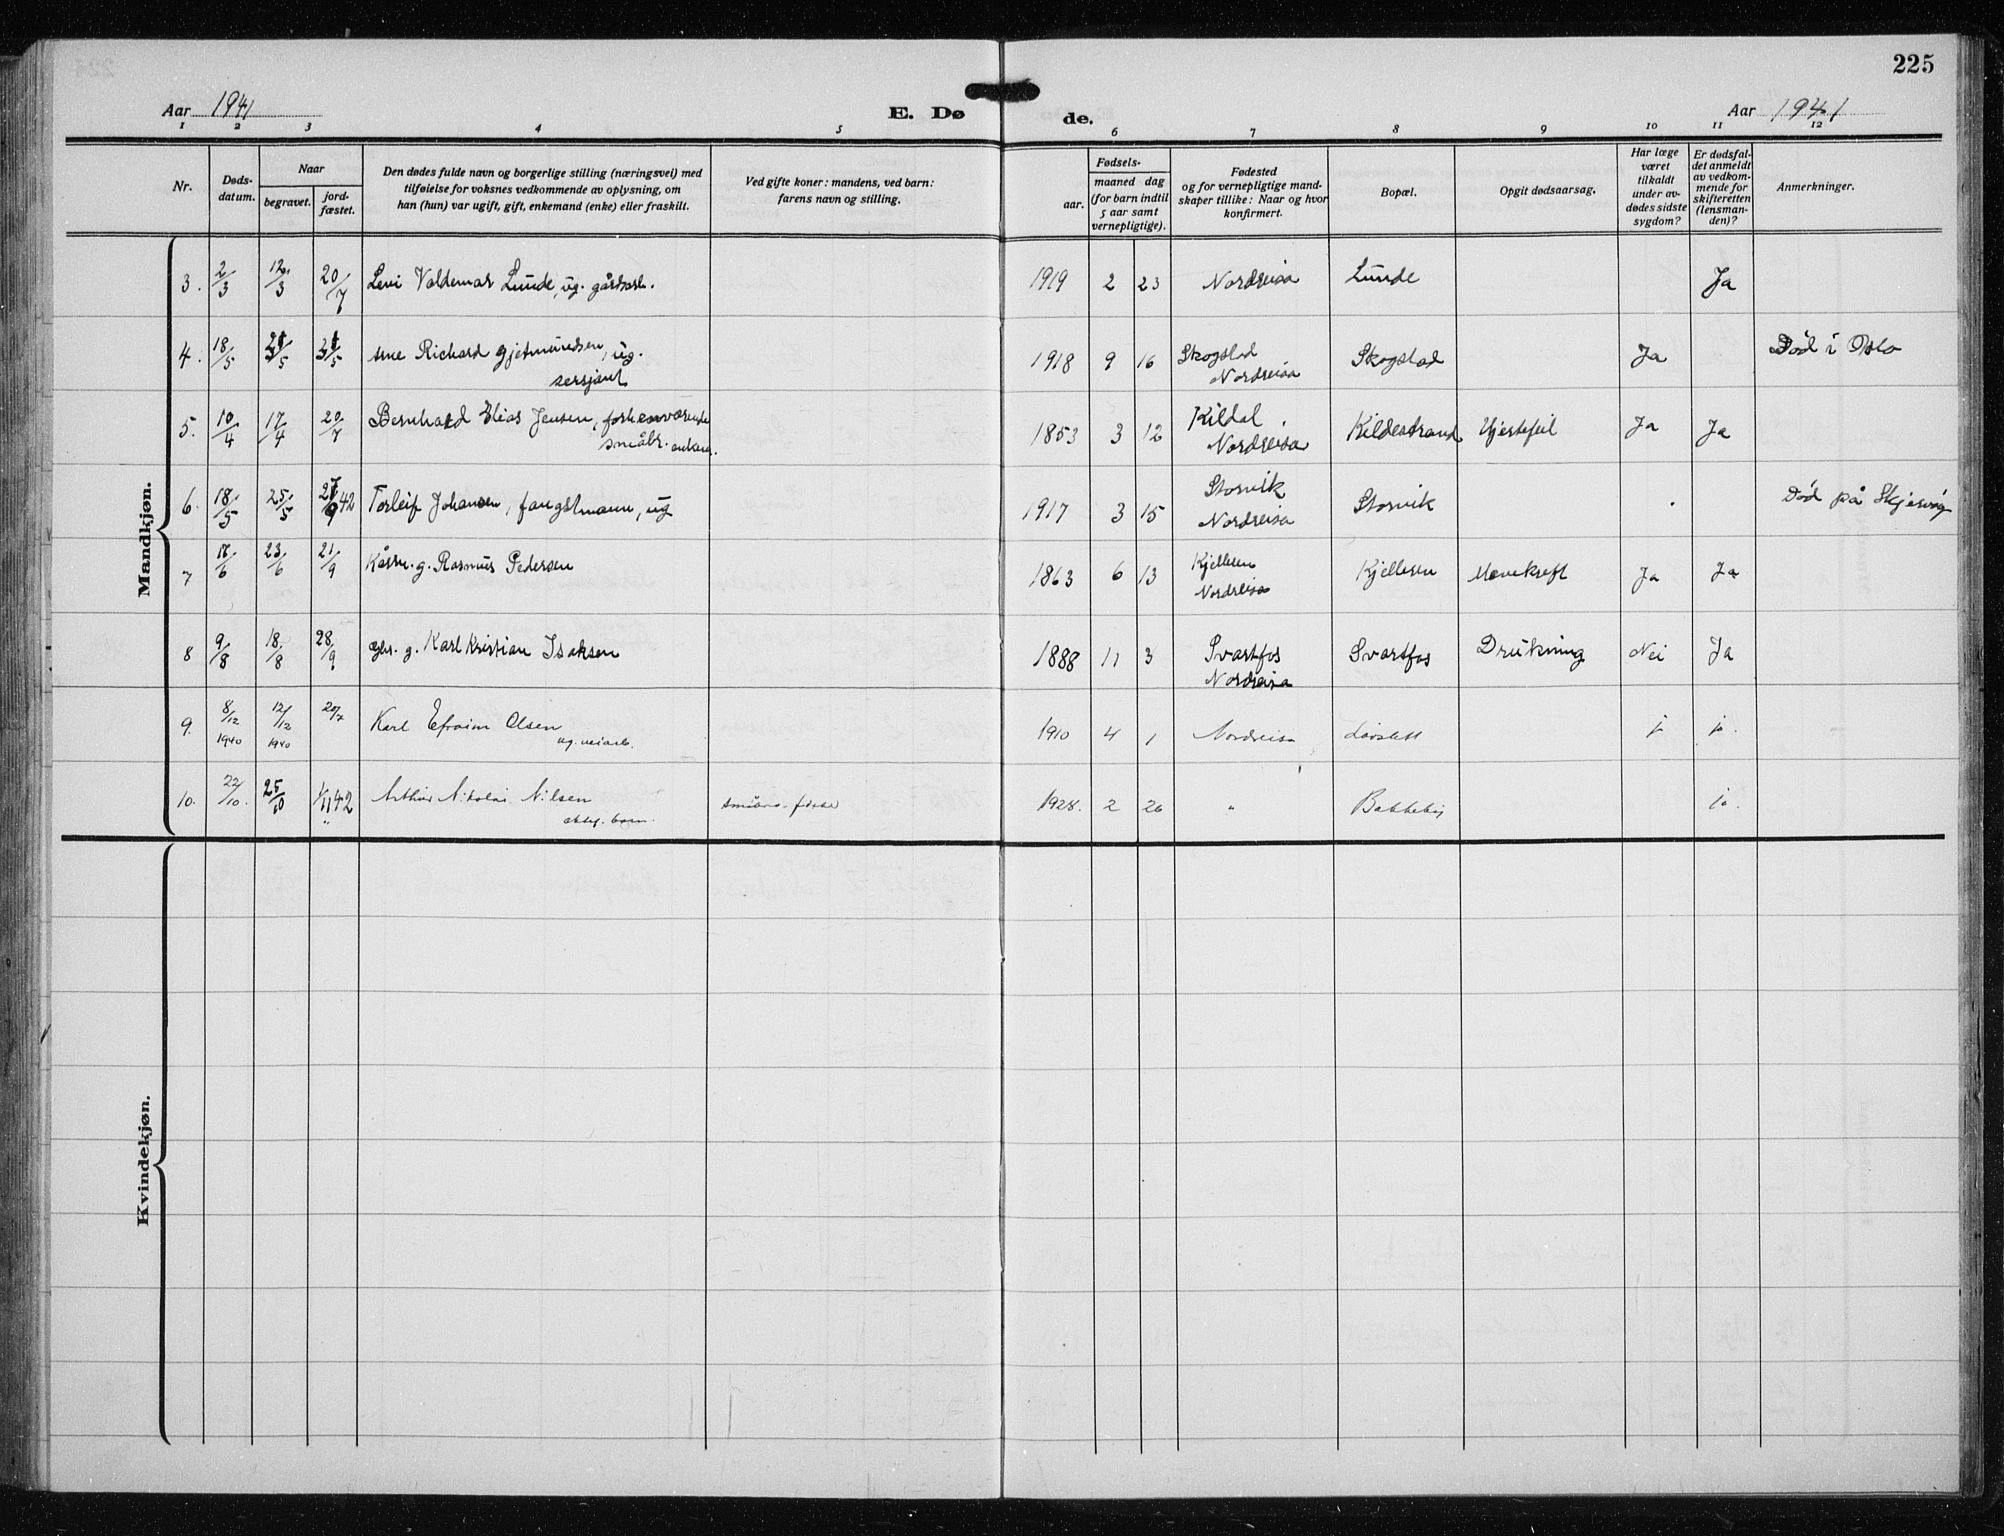 225
Aar 1941
E. Dø
de.
Aar 1941
1 2 3 4 5 6 7 8 9 10 11 12
Nr.
Døds-
datum.
Naar
begravet.
jord-
fæstet.
Den dødes fulde navn og borgerlige stilling (næringsvei) med
tilføielse for voksnes vedkommende av oplysning, om
han (hun) var ugift, gift, enkemand (enke) eller fraskilt.
Ved gifte koner: mandens, ved barn:
farens navn og stilling.
Fødsels-
aar.
maaned dag
(for barn indtil
5 aar samt
vernepligtige).
Fødested
og for vernepligtige mand-
skaper tillike: Naar og hvor
konfirmert.
Bopæl.
Opgit dødsaarsag.
Har læge
været
tilkaldt
under av-
dødes sidste
sygdom?
Er dødsfal-
det anmeldt
av vedkom-
mende for
skifteretten
(lensman-
den)?
Anmerkninger.
Mandkjøn.
3. 2/3 12/3 20/7 Levi Valdemar Lunde, ug. gårdsarb. 1919 2 23 Nordreisa Lunde Ja
4. 18/5 5 5 Arne Richard Gjetmundsen, ug. 1918 9 16 Skogstad Skogstad Ja Død i Oslo
sersjant Nordreisa
5. 10/4 17/4 20/7 Bernhard Elias Jensen, forhenværende 1853 3 12 Kildal Kildestrand Hjertefeil Ja Ja
småbr. enkem. Nordreisa
6. 18/5 25/5 9 42 Torleif Johansen, fangstmann, ug 1917 3 15 Storvik Storvik Død på Skjervøy
Nordreisa
7 17/6 23/6 21/9 Kårm. g. Rasmus Pedersen 1863 6 13 Kjelleren Kjelleren Mavekreft Ja Ja
Nordreisa
8 9/8 18/8 28/9 g. Karl Kristian Isaksen 1888 11 3 Svartfos Svartfos Drukning Nei Ja
Nordreisa
9. 8/12 12/12 20/7 Karl Efraim Olsen 1910 4 1 Nordreisa j. j.
1940 1940 ug. veiarb.
10. 22/10. 25/10 1/11 42 Arthur Nikolai Nilsen 1928. 2 26 " Bakkeby j.
" ekteg. barn.
Kvindekjøn.